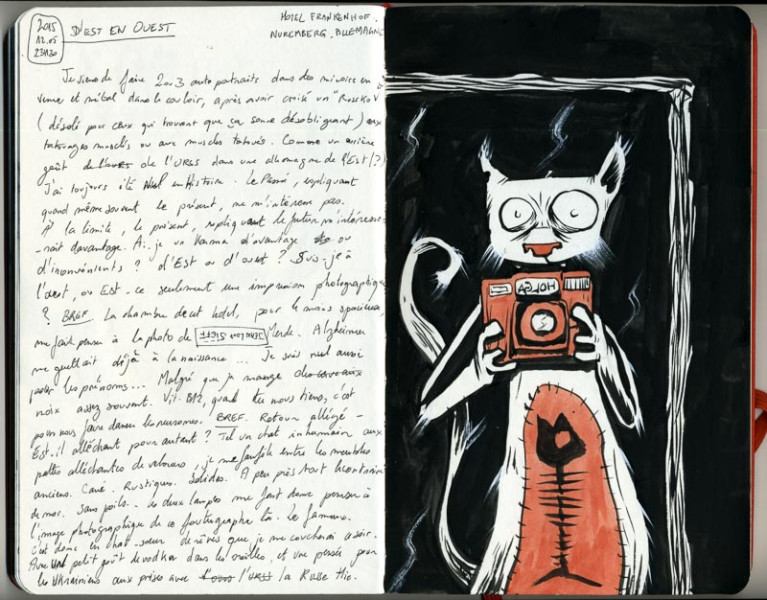 2015
12.05
23H30
D'EST EN OUEST
HOTEL FRANKENHOF.
NUREMBERG. ALLEMAGNE
Je viens de faire 2 ou 3 auto portraits dans des miroirs en
verre et métal dans le couloir, après avoir croisé un "Roskov"
(désolé pour ceux qui trouvent que ça sonne désobligeant) aux
tatouages musclés ou aux muscles tatoués. Comme un arrière
goût de l'URSS dans une allemagne de l'Est (?)
J'ai toujours été nul en Histoire. Le Passé, expliquant
quand même souvent le présent, ne m'intéresse pas.
À la limite, le présent, expliquant le futur m'intéresse-
-rait davantage. Ai-je un Karma d'avantage ou
d'inconvénients ? d'Est ou d'ouest ? Suis-je à
l'ouest, ou Est-ce seulement une impression photographique
? BREF. La chambre de cet hotel, pour le moins spacieuse,
me fait penser à la photo de JEANLOUP SIEFF Merde. Alzheimer
me guettait déjà à la naissance... Je suis nul aussi
pour les prénoms... Malgré que je mange des
noix assez souvent. Vit. B12, quand tu nous tiens, c'est
pour nous faire danser les neurones. BREF. Retour allégé -
Est-il alléchant pour autant ? Tel un chat inhumain aux
pattes alléchantes de velours, je me faufile entre les meubles
anciens. Carré. Rustiques. Solides. A peu près tout le contraire
de moi. Sans poils. Les deux lampes me font donc penser à
l'image photographique de ce photographe là. Le fameux.
C'est donc en chat-sœur de rêves que je me coucherai ce soir.
Avec un petit goût de vodka dans les oreilles, et une pensée pour
les Ukrainiens aux prises avec l'URSS la Russe Hic.
HOLGA